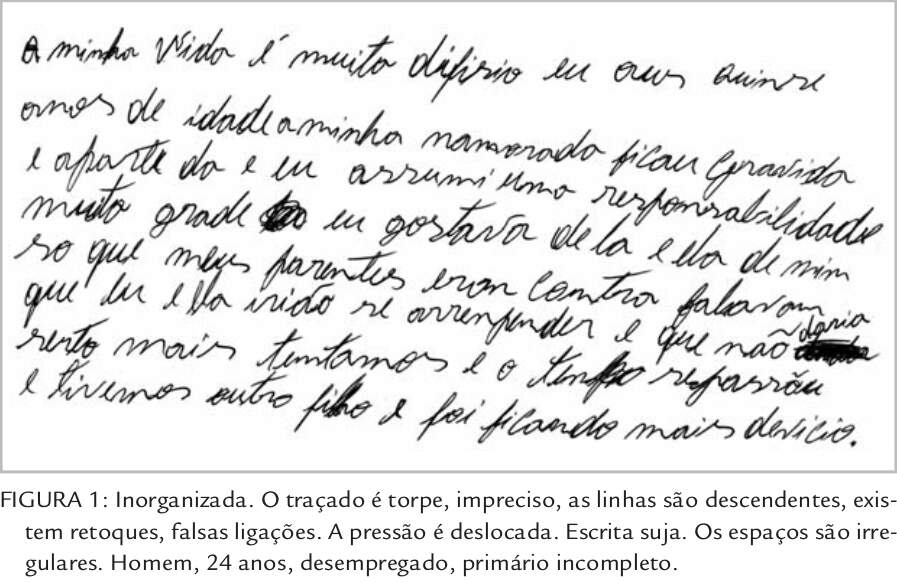 A minha Vida é muito difisio eu aus quinse
anos de idade a minha namorada ficau Gravida
e aparte da e eu assumi uma responsabilidade
muito grade eu gostava dela e ela de mim
so que meus parentes eran contra falavam
que eu e ela irião se arrenpender e que não daria
serto mais tentamos e o tenpo se passão
e tivemos outro filho e foi ficando mais devicio.
FIGURA 1: Inorganizada. O traçado é torpe, impreciso, as linhas são descendentes, exis-
tem retoques, falsas ligações. A pressão é deslocada. Escrita suja. Os espaços são irre-
gulares. Homem, 24 anos, desempregado, primário incompleto.